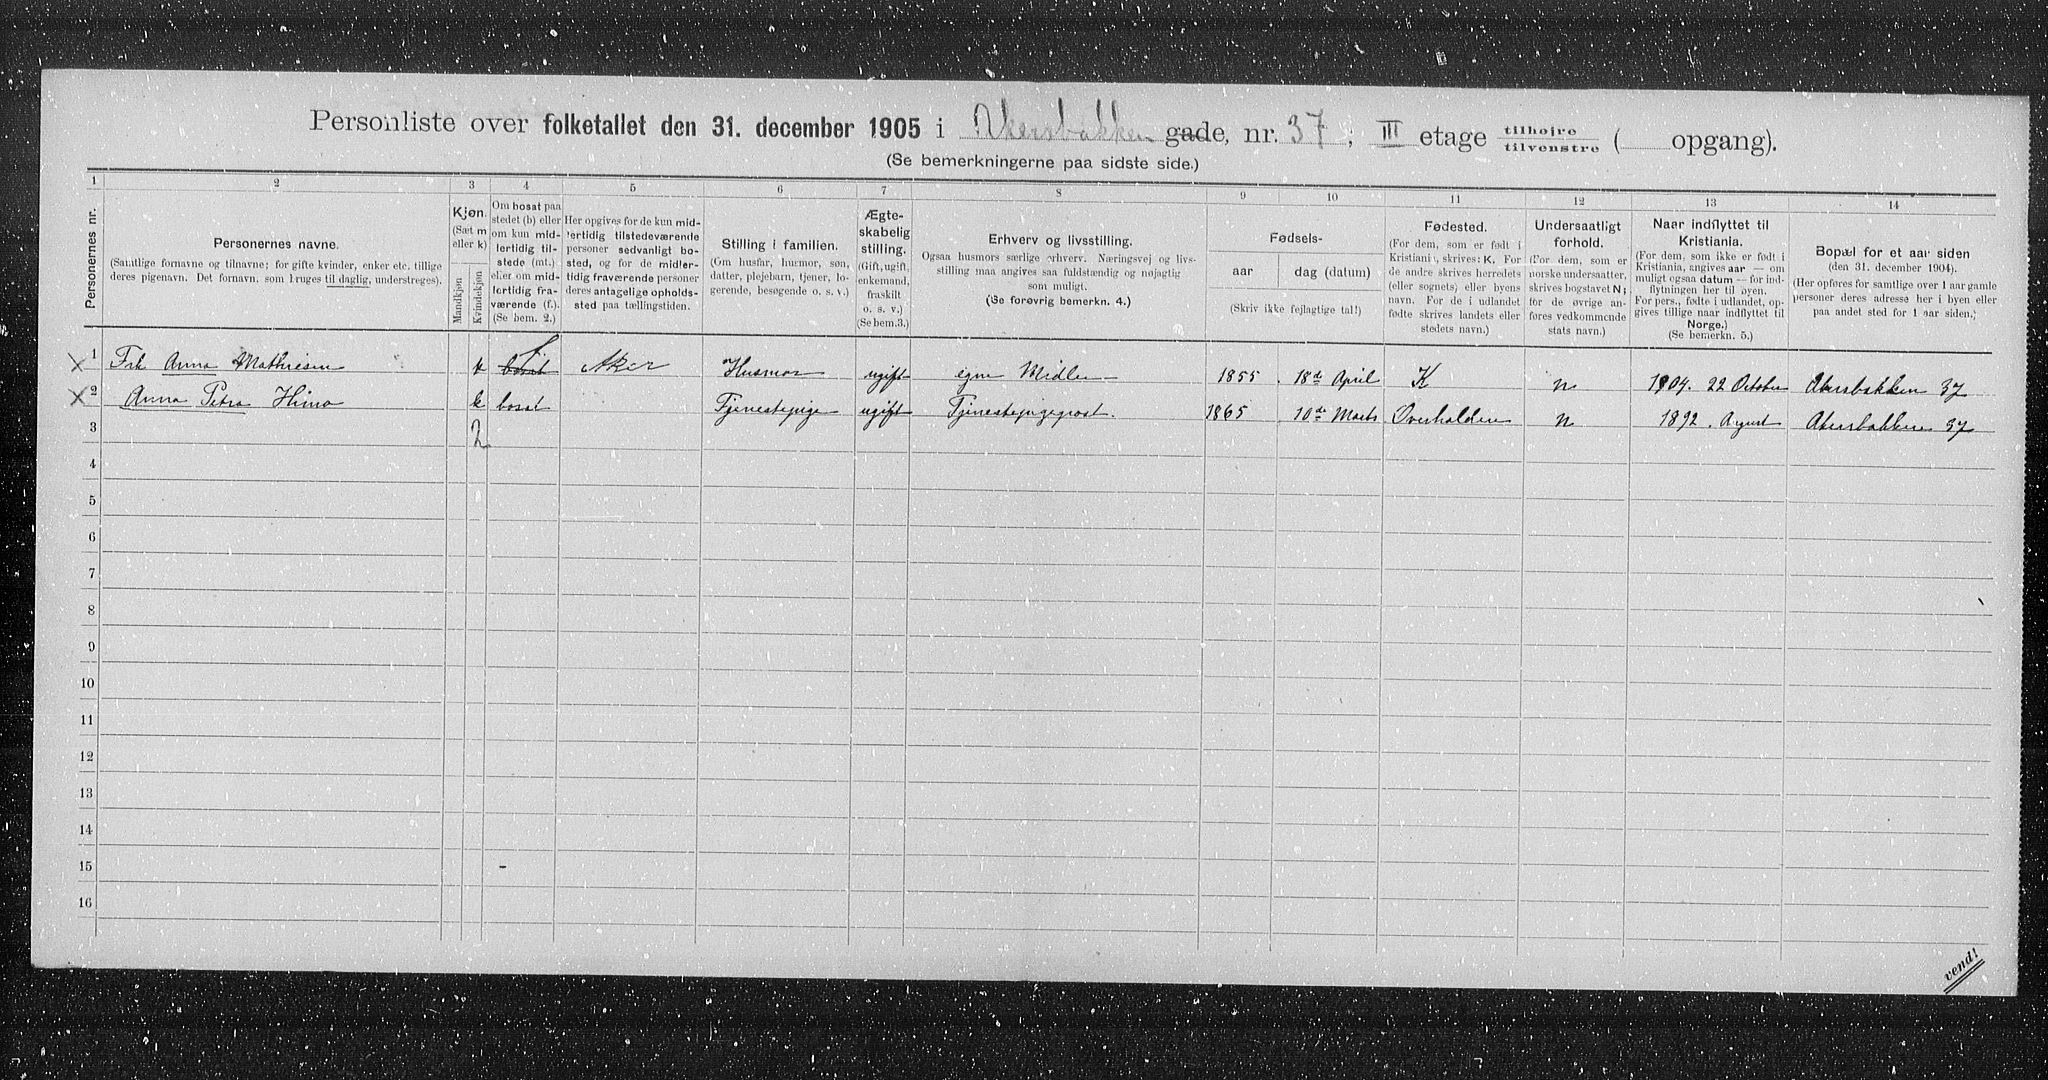 Personliste over folketallet den 31. december 1905 i Akersbakken gade, nr. 37; III etage tilhøjre tilvenstre ( opgang).
(Se bemerkningerne paa sidste side.)
1 2 3 4 5 6 7 8 9 10 11 12 13 14
Personernes nr.
Personernes navne.
(Samtlige fornavne og tilnavne; for gifte kvinder, enker etc. tillige
deres pigenavn. Det fornavn, som bruges til daglig, understreges).
Kjøn.
(Sæt m
eller k)
Mandkjøn
Kvindekjøn
Om bosat paa
stedet (b) eller
om kun mid-
lertidig til-
stede (mt.)
eller om mid-
lertidig fra-
værende (f.).
(Se bem. 2.)
Her opgives for de kun mid-
lertidig tilstedeværende
personer sedvanligt bo-
sted, og for de midler-
tidig fraværende personer
deres antagelige opholds-
sted paa tællingstiden.
Stilling i familien.
(Om husfar, husmor, søn,
datter, plejebarn, tjener, lo-
gerende, besøgende o. s. v.)
Ægte-
skabelig
stilling.
(Gift, ugift,
enkemand,
fraskilt
o. s. v.)
(Se bem.3.)
Erhverv og livsstilling.
Ogsaa husmors særlige erhverv. Næringsvej og livs-
stilling maa angives saa fuldstændig og nøjagtig
som muligt.
(Se forøvrig bemerkn. 4.)
Fødsels-
aar
dag (datum)
(Skriv ikke fejlagtige tal!)
Fødested.
(For dem, som er født i
Kristiania, skrives: K. For
de andre skrives herredets
(eller sognets) eller byens
navn. For de i udlandet
fødte skrives landets eller
stedets navn.)
Undersaatligt
forhold.
(For dem, som er
norske undersaatter,
skrives bogstavet N;
for de øvrige an-
føres vedkommende
stats navn.)
Naar indflyttet til
Kristiania.
(For dem, som ikke er født i
Kristiania, angives aar — om
muligt ogsaa datum — for ind-
flytningen her til byen.
For pers., fødte i udlandet, op-
gives tillige naar indflyttet til
Norge.)
(Se bemerkn. 5.)
Bopæl for et aar siden
(den 31. december 1904.)
(Her opføres for samtlige over 1 aar gamle
personer deres adresse her i byen eller
paa andet sted for 1 aar siden.)
1 Frk Anna Mathiesen k bosat f Aker Husmor ugift egne Midler 1855 18de April K n 1904. 22 October Akersbakken 37
2 Anna Petra Himo k bosat Tjenestepige ugift Tjenestepigepost. 1865 10de Marts Overhalden n 1892. August Akersbakken 37
3 2
4
5
6
7
8
9
10
11
12
13
14
15 -
16
vend!